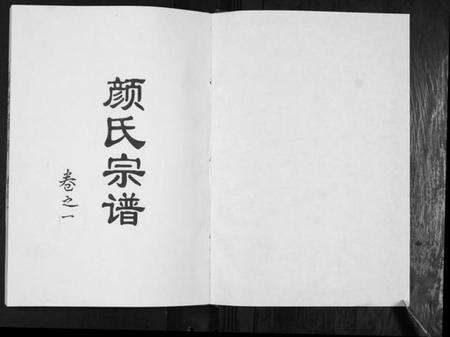 颜氏宗谱
卷之一